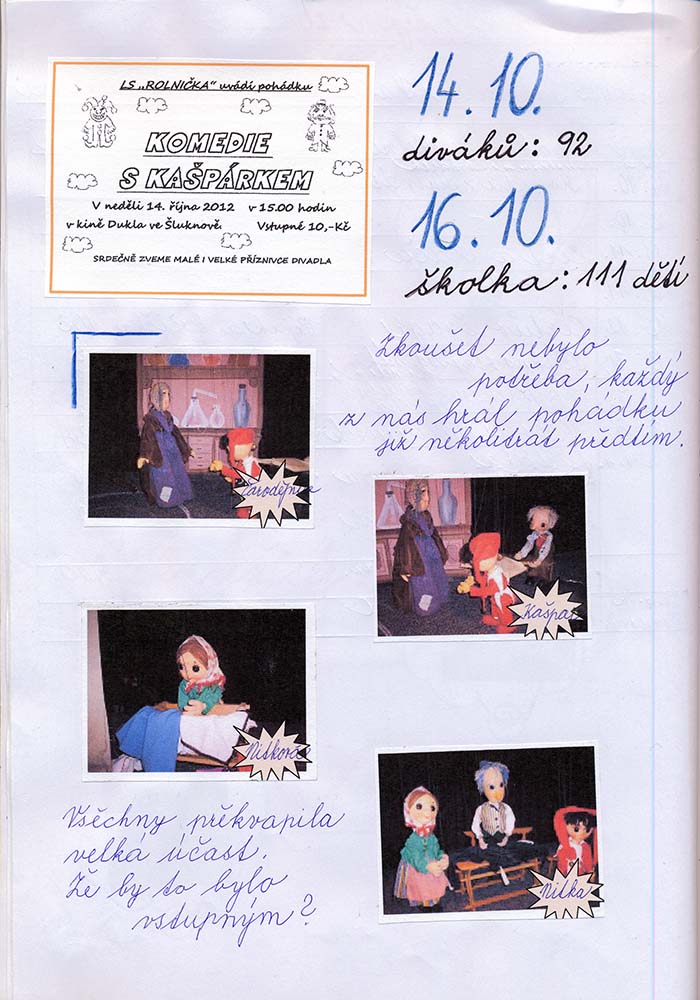 LS „ROLNIČKA“ uvádí pohádku
KOMEDIE
S KAŠPÁRKEM
V neděli 14. října 2012 v 15.00 hodin
v kině Dukla ve Šluknově. Vstupné 10,-Kč
SRDEČNĚ ZVEME MALÉ I VELKÉ PŘÍZNIVCE DIVADLA
14. 10.
diváků: 92
16. 10.
školka: 111 dětí
Zkoušet nebylo
potřeba, každý
z nás hrál pohádku
již několikrát předtím.
Čarodějnice
Kašpar
Nitková
Nitka
Všechny překvapila
velká účast.
Že by to bylo
vstupným?